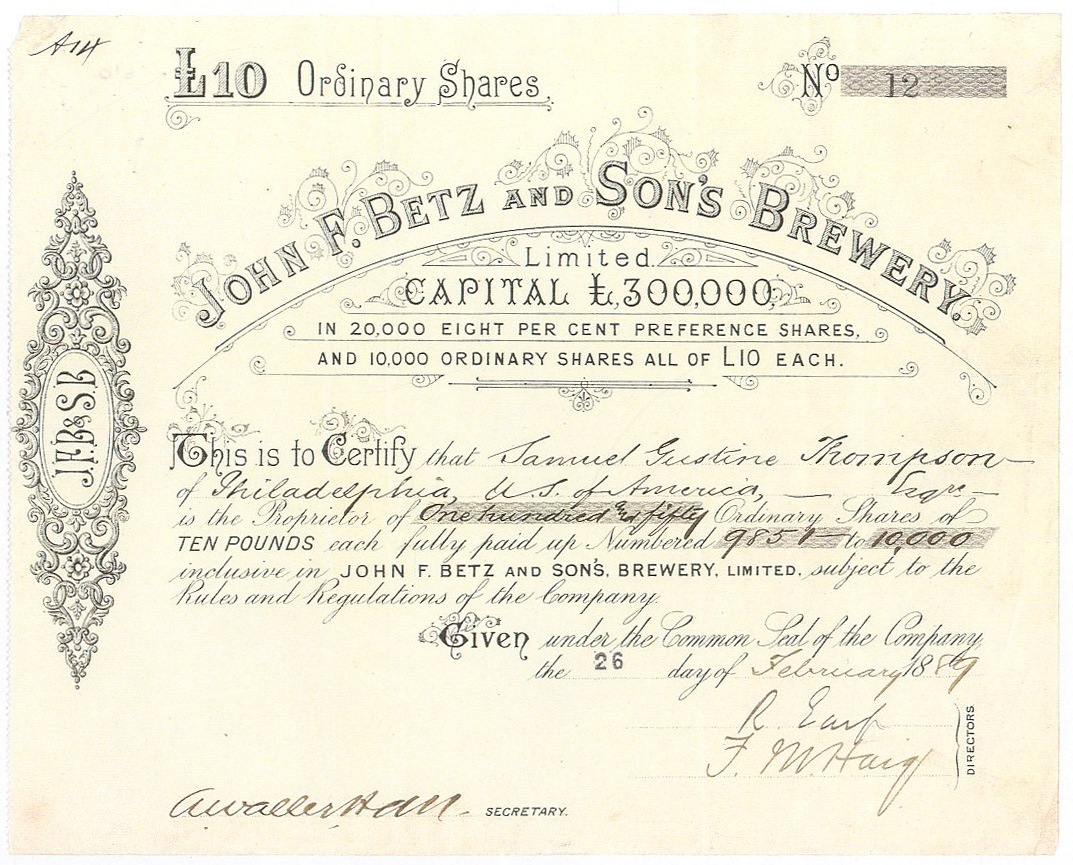 A14
£10 Ordinary Shares.
No 12
JOHN F. BETZ AND SON'S BREWERY.
Limited.
CAPITAL £300,000,
IN 20,000 EIGHT PER CENT PREFERENCE SHARES,
AND 10,000 ORDINARY SHARES ALL OF L10 EACH.
J.F.B.&S.B
This is to Certify that Samuel Gustine Thompson
of Philadelphia, U.S. of America, Esqre
is the Proprietor of One hundred & fifty Ordinary Shares of
TEN POUNDS each fully paid up Numbered 9851 to 10,000
inclusive in JOHN F. BETZ AND SON'S, BREWERY, LIMITED, subject to the
Rules and Regulations of the Company.
Given under the Common Seal of the Company,
the 26 day of February 1889
R. Earp
F. M. Haig
DIRECTORS
SECRETARY.